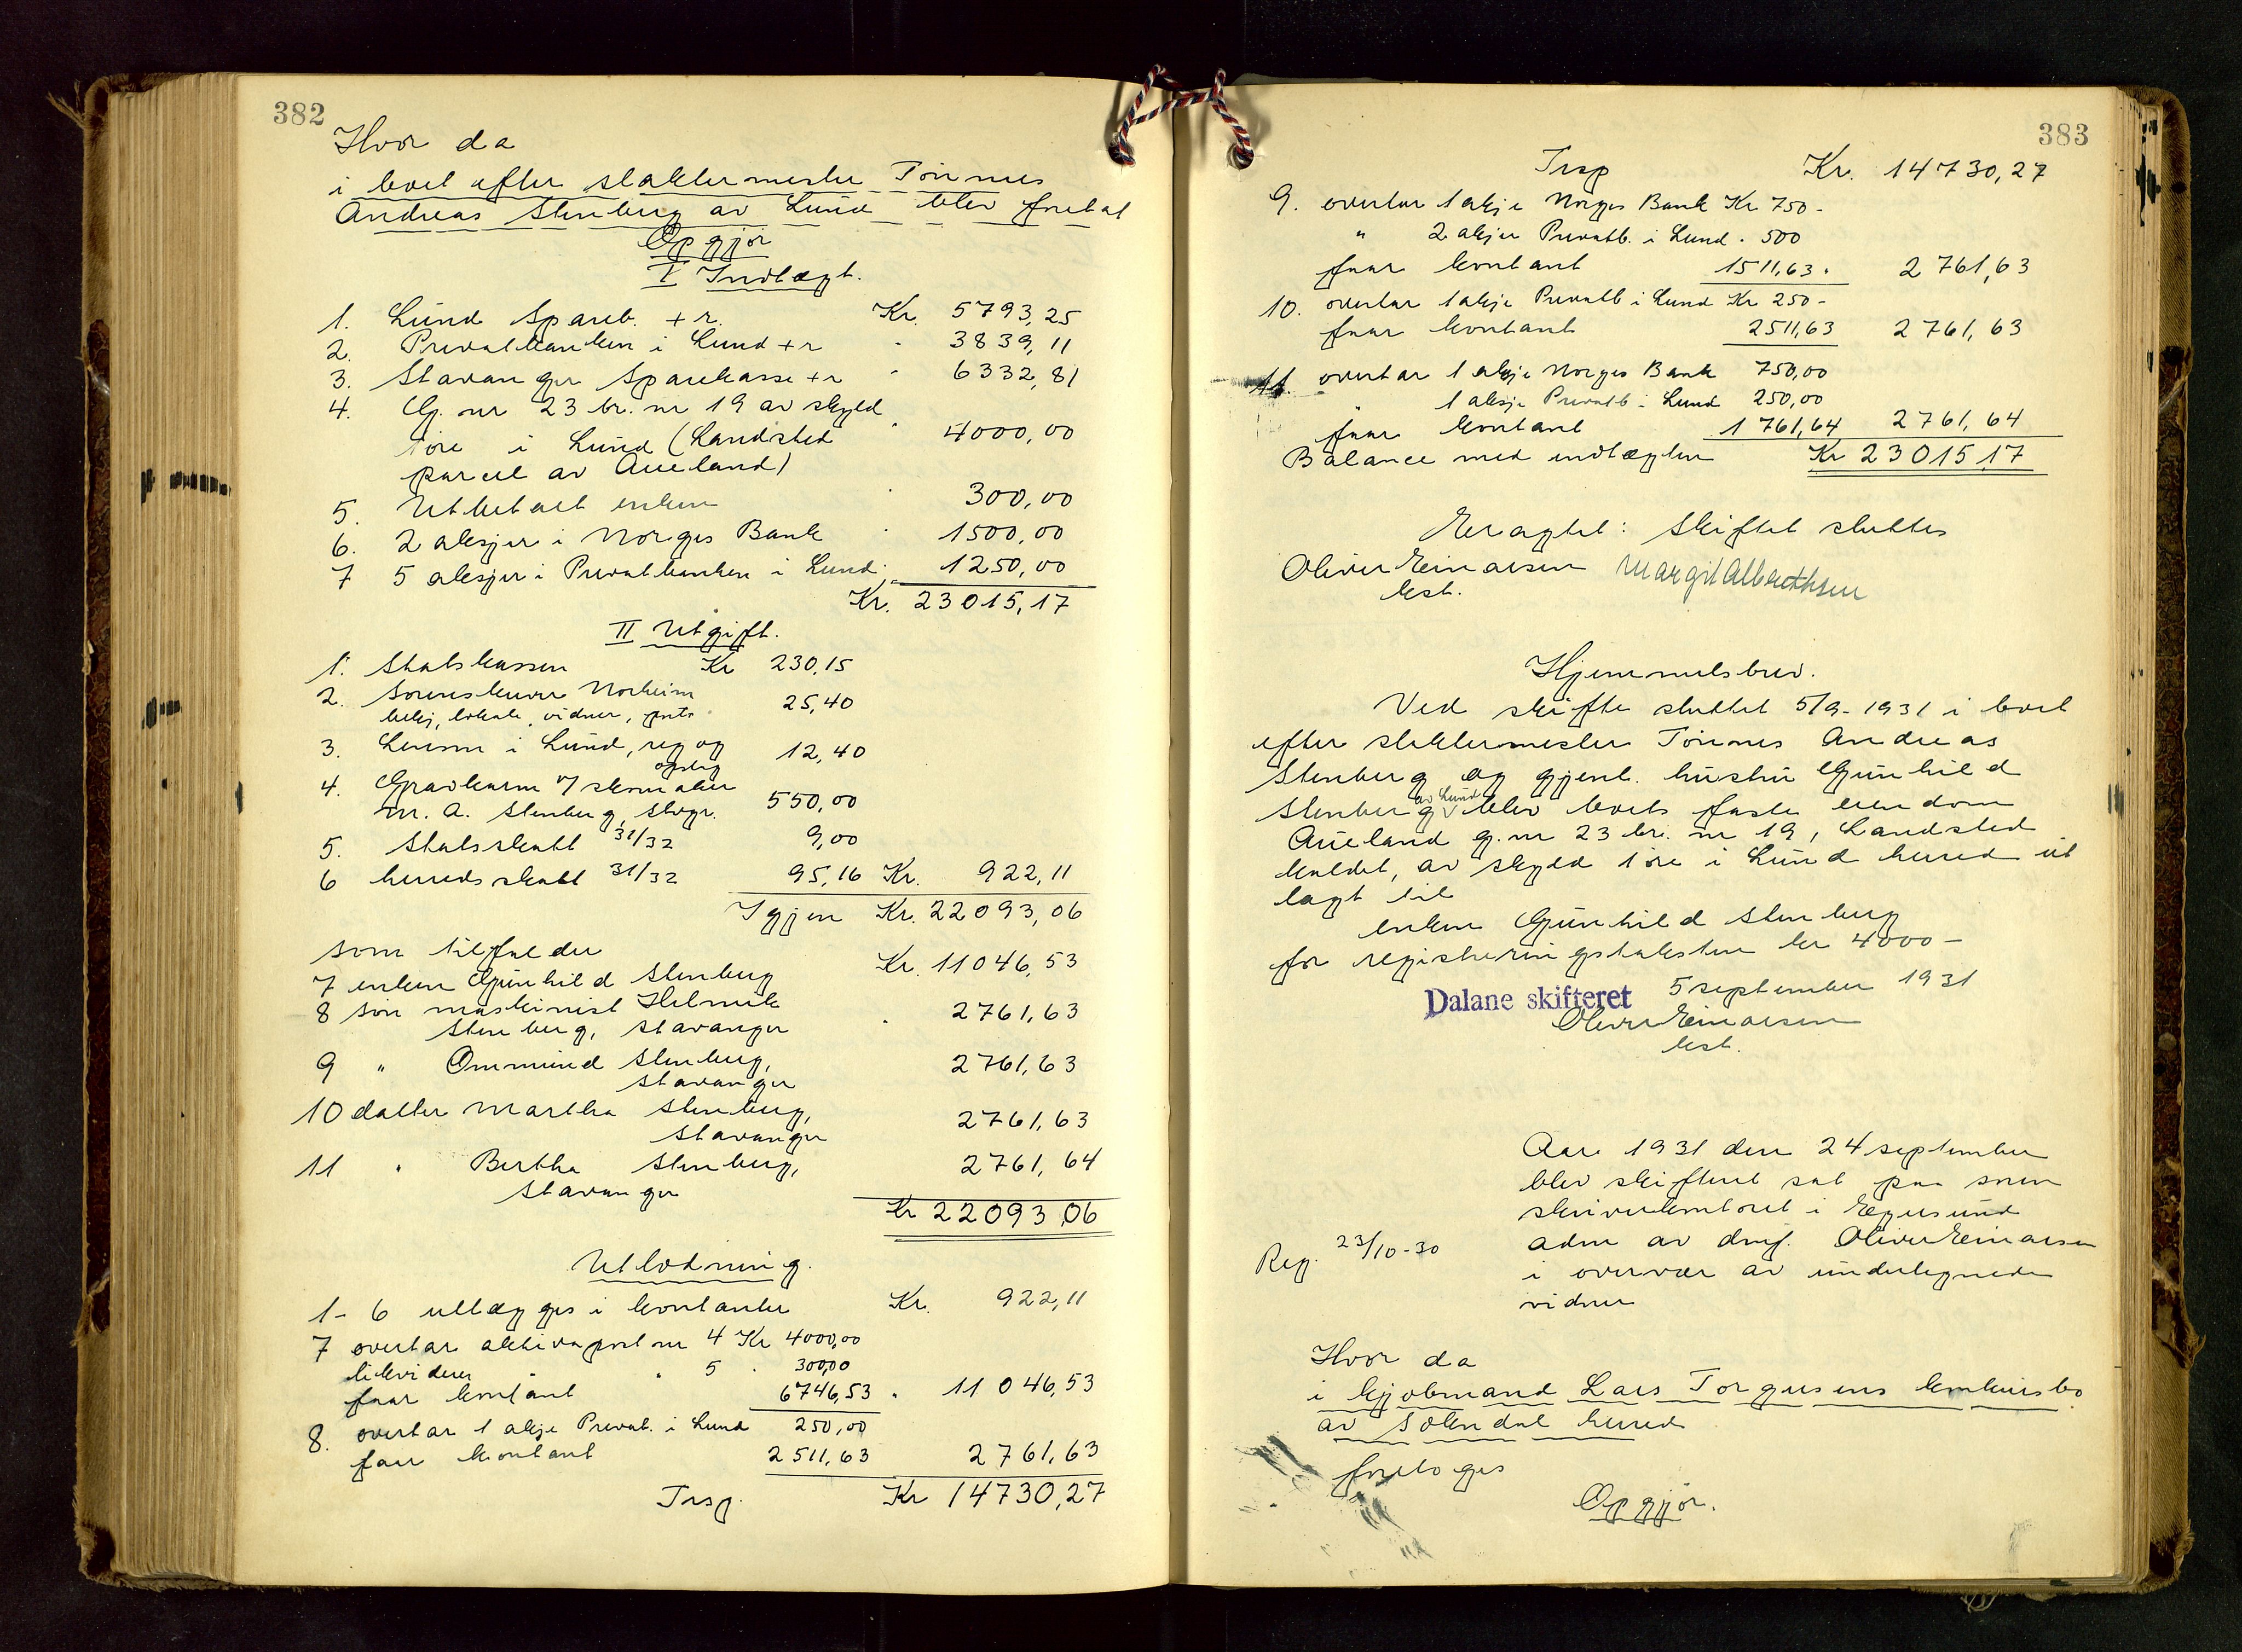 382
Hvor da
i boet efter slaktermester Tönnes
Andreas Stenberg av Lund blev foretat
Opgjör
I Indtægt.
1. Lund Spareb. + r. Kr. 5793,25
2. Privatbanken i Lund + r " 3839,11
3. Stavanger Sparekasse + r " 6332,81
4. G. nr 23 br. nr 19 av skyld
1 öre i Lund (Landsted " 4000,00
parcel av Aueland)
5. Utbetalt enken " 300,00
6. 2 aksjer i Norges Bank " 1500,00
7 5 aksjer i Privatbanken i Lund " 1250,00
Kr. 23015,17
II Utgift.
1. Statskassen Kr 230,15
2. Sorenskriver Norheim
bekj, lokale, vidner, porto 25,40
3. Lensm i Lund, reg og 12,40
opslag
4. Gravkarm v/ skomaker
M. A. Stenberg, Stvgr. 550,00
5. Statsskatt 31/32 9,00
6 herredsskatt 31/32 95,16 Kr. 922,11
Igjen Kr. 22093,06
som tilfalder
7 enken Gunhild Stenberg Kr. 11046,53
8 sön maskinist Helmik
Stenberg, Stavanger " 2761,63
9 " Ommund Stenberg, 2761,63
Stavanger
10 datter Martha Stenberg, 2761,63
Stavanger
11 " Bertha Stenberg, 2761,64
Stavanger
Kr 22093,06
Utlodning.
1-6 utlægges i kontanter Kr. 922,11
7 overtar aktivapost nr 4 Kr 4000,00
likviderer " " 5 " 300,00
faar kontant 6746,53 " 11046,53
8. overtar 1 aksje Privatb. i Lund 250,00
faar kontant 2511,63 2761,63
Trsp. Kr 14730,27
383
Trsp Kr. 14730,27
9. overtar 1 aksje Norges Bank Kr 750-
" 2 aksjer Privatb. i Lund " 500
faar kontant 1511,63 " 2761,63
10. overtar 1 aksje Privatb i Lund Kr 250-
faar kontant 2511,63 2761,63
11. overtar 1 aksje Norges Bank 750,00
" 1 aksje Privatb i Lund 250,00
faar kontant 1761,64 2761,64
Balance med indtægten Kr 23015,17
Eragtet: Skiftet sluttes
Oliver Einarsen Margit Albrethsen
kst.
Hjemmelsbrev.
Ved skifte sluttet 5/9-1931 i boet
efter slaktermester Tönnes Andreas
Stenberg og gjenl. hustru Gunhild
av Lund
Stenberg blev boets faste eiendom
Aueland g. nr 23 br. nr 19, Landsted
kaldet, av skyld 1 öre i Lund herred ut
lagt til
enken Gunhild Stenberg
for registreringstaksten kr 4000-
Dalane skifteret 5 september 1931
Oliver Einarsen
kst.
Aar 1931 den 24 september
blev skifteret sat paa soren
skriverkontoret i Egersund
Reg. 23/10-30 adm av dmf. Oliver Einarsen
i overvær av undertegnede
vidner
Hvor da
i kjøbmand Lars Torgersens konkursbo
av Sokndal herred
foretoges
Opgjör.